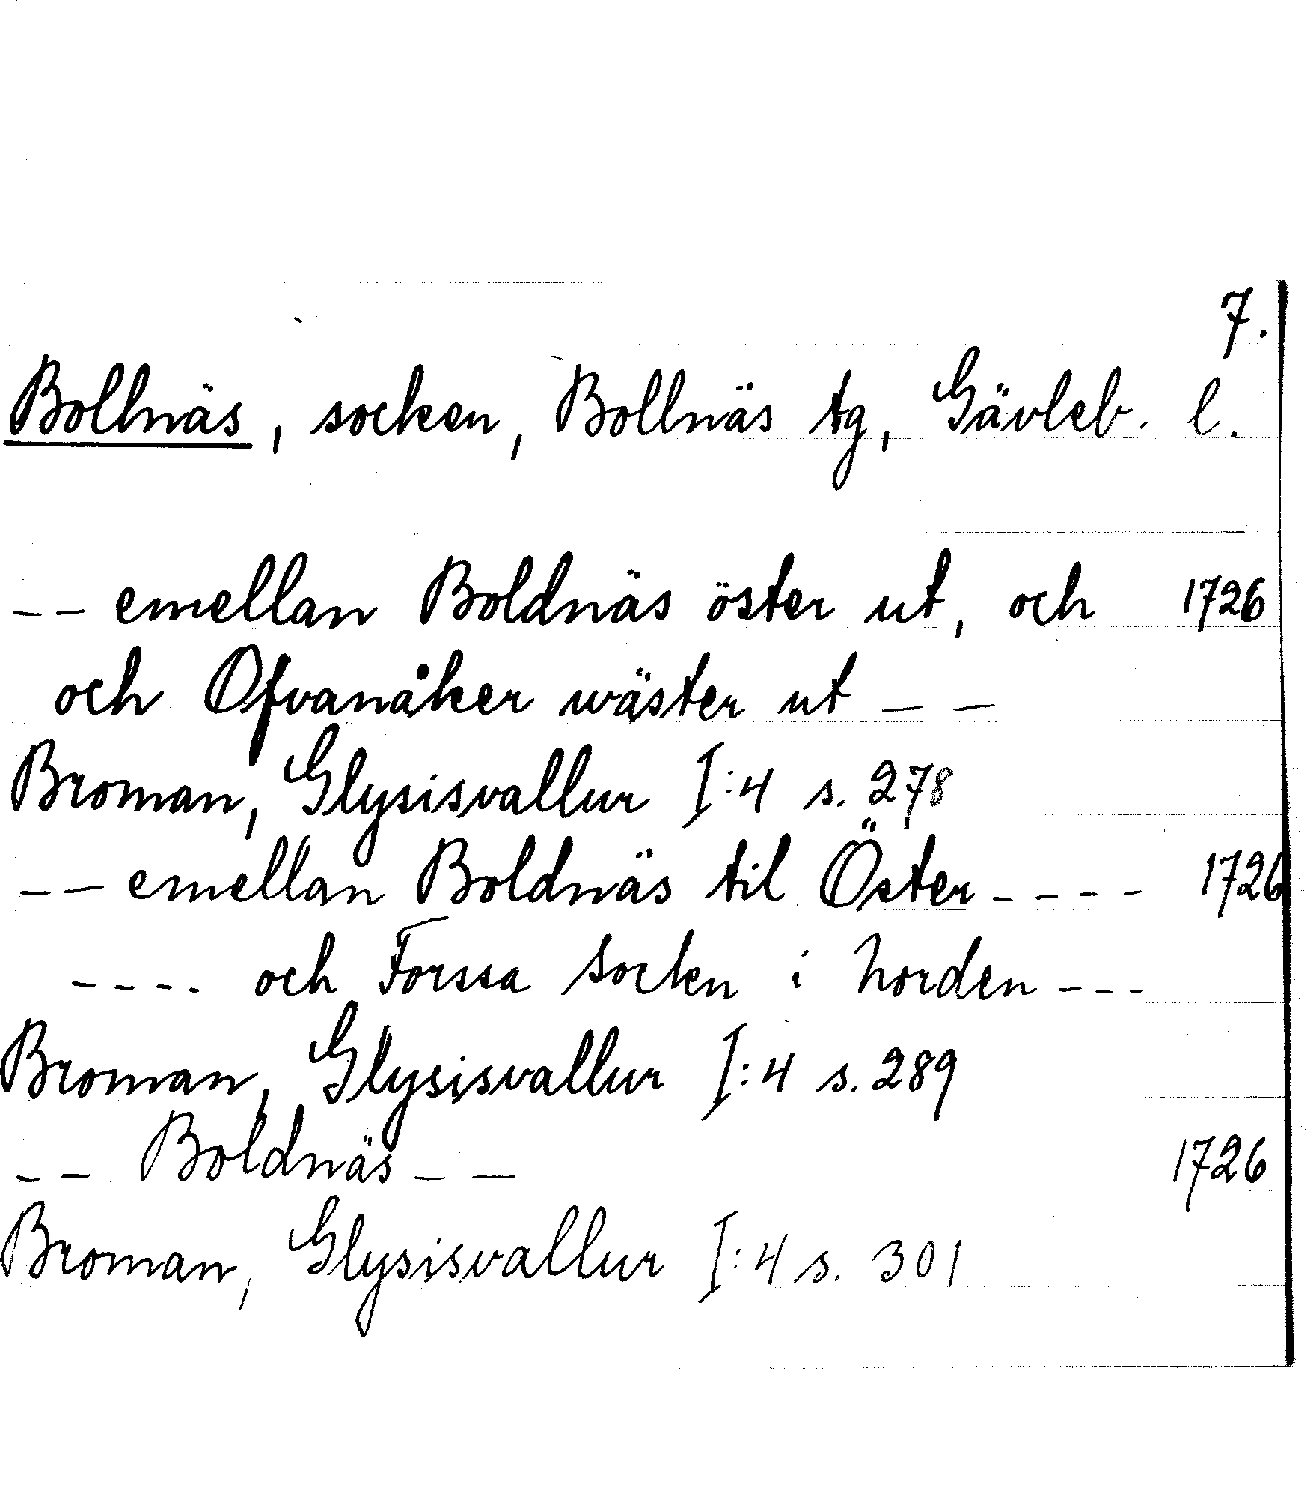 7.
Bollnäs, socken, Bollnäs tg, Gävleb. l.
-- emellan Boldnäs öster ut, och 1726
och Ofvanåker wäster ut --
Broman, Glysisvallur I:4 s. 278
-- emellan Boldnäs til Öster ---- 1726
---- och Forssa Socken i Norden ---
Broman, Glysisvallur I:4 s. 289
-- Boldnäs -- 1726
Broman, Glysisvallur I:4 s. 301